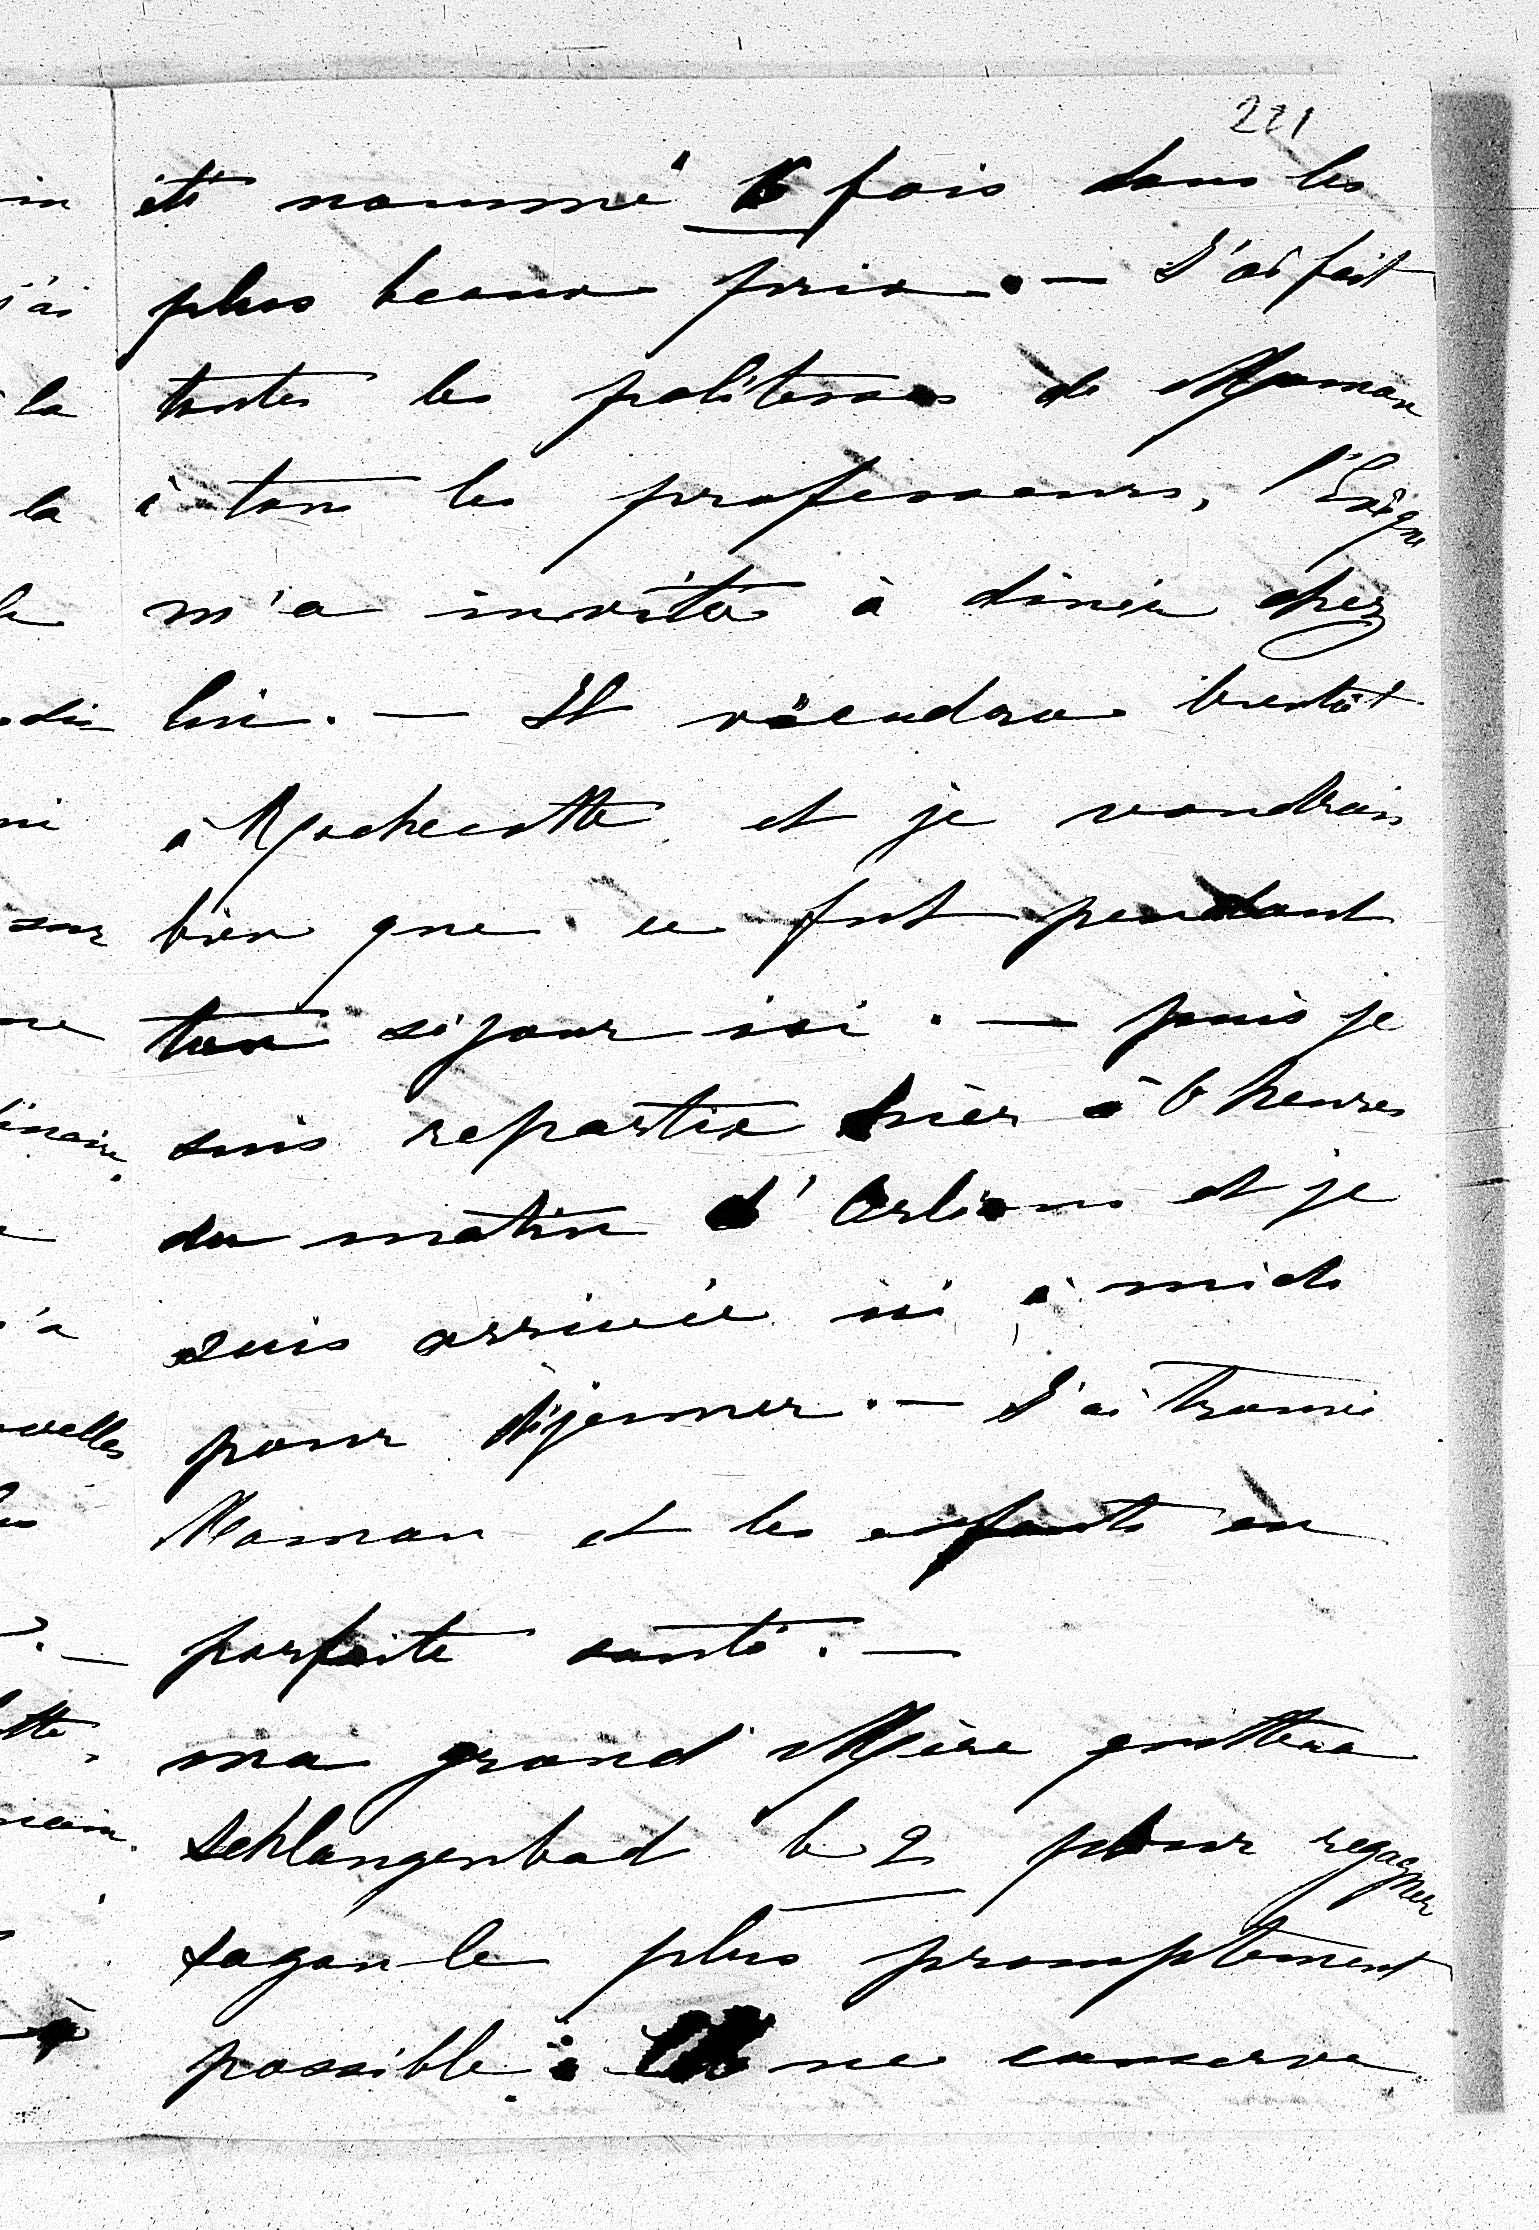 221
été nommé 6 fois dans les
plus beaux prix. — J'ai fait
toutes les politesses de Maman
à tous les professeurs, l'Evêque
m'a invitée à diner chez
lui. — Il viendra bientôt
à Rochecotte et je voudrais
bien que ce fut pendant
ton séjour ici. — puis je
suis repartie hier à 6 heures
du matin d'Orléans et je
suis arrivée ici à midi
pour déjeuner. — J'ai trouvé
Maman et les enfants en
parfaite santé. —
ma grand Mère quittera
Schlangenbad le 2 pour regagner
Sagan le plus promptement
possible. ne conserve